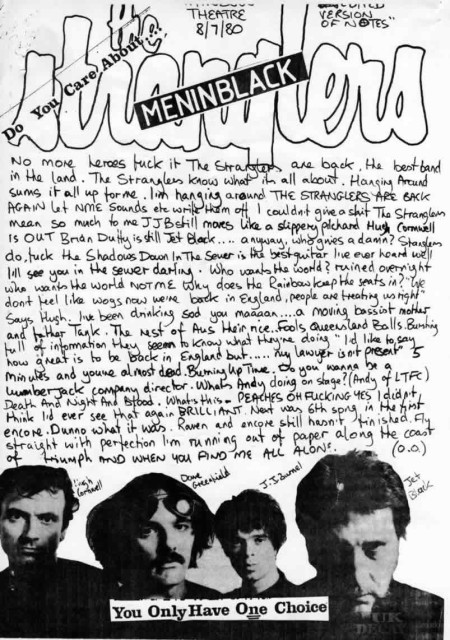 THEATRE
8/7/80
VERSION
OF NOTES"
Do You Care About...
the
stranglers
MENINBLACK
No more heroes fuck it The Stranglers are back, the best band
in the land. The Stranglers know what it's all about. Hanging Around
sums it all up for me. I'm hanging around THE STRANGLERS ARE BACK
AGAIN let NME Sounds etc write them off I couldnt give a shit The Stranglers
mean so much to me JJB still moves like a slippery pilchard Hugh Cornwell
Is OUT Brian Duffy is still Jet Black.... anyway, who gives a damn? Stranglers
do, fuck the Shadows Down In The Sewer is the best guitar I've ever heard well
I'll see you in the sewer darling. Who wants the world? ruined overnight
who wants the world NOT ME why does the Rainbow keep the seats in? "We
dont feel like wogs now we're back in England, people are treating us right"
Says Hugh. I've been drinking sod you maaaan....a moving bassist mother
and father Tank. The rest of Aus their nice..Fools Queensland Balls. Bursting
full of information they seem to know what they're doing "I'd like to say
how great is to be back in England but..... my lawyer is not present" 5
Minutes and you're almost dead. Burning Up Time. Do you wanna be a
lumberjack company director. Whats Andy doing on stage? (Andy of LTFC)
Death And Night And Blood. Whats this - PEACHES OH FUCKING YES I didn't
think I'd ever see that again BRILLIANT. Next was 6th song in the first
encore. Dunno what it was. Raven and encore still hasn't finished. Fly
straight with perfection I'm running out of paper along the coast
of triumph AND WHEN YOU FIND ME ALL ALONE. (O.O.)
Hugh Cornwell
Dave Greenfield
J.J. Burnel
Jet Black
You Only Have One Choice
UK